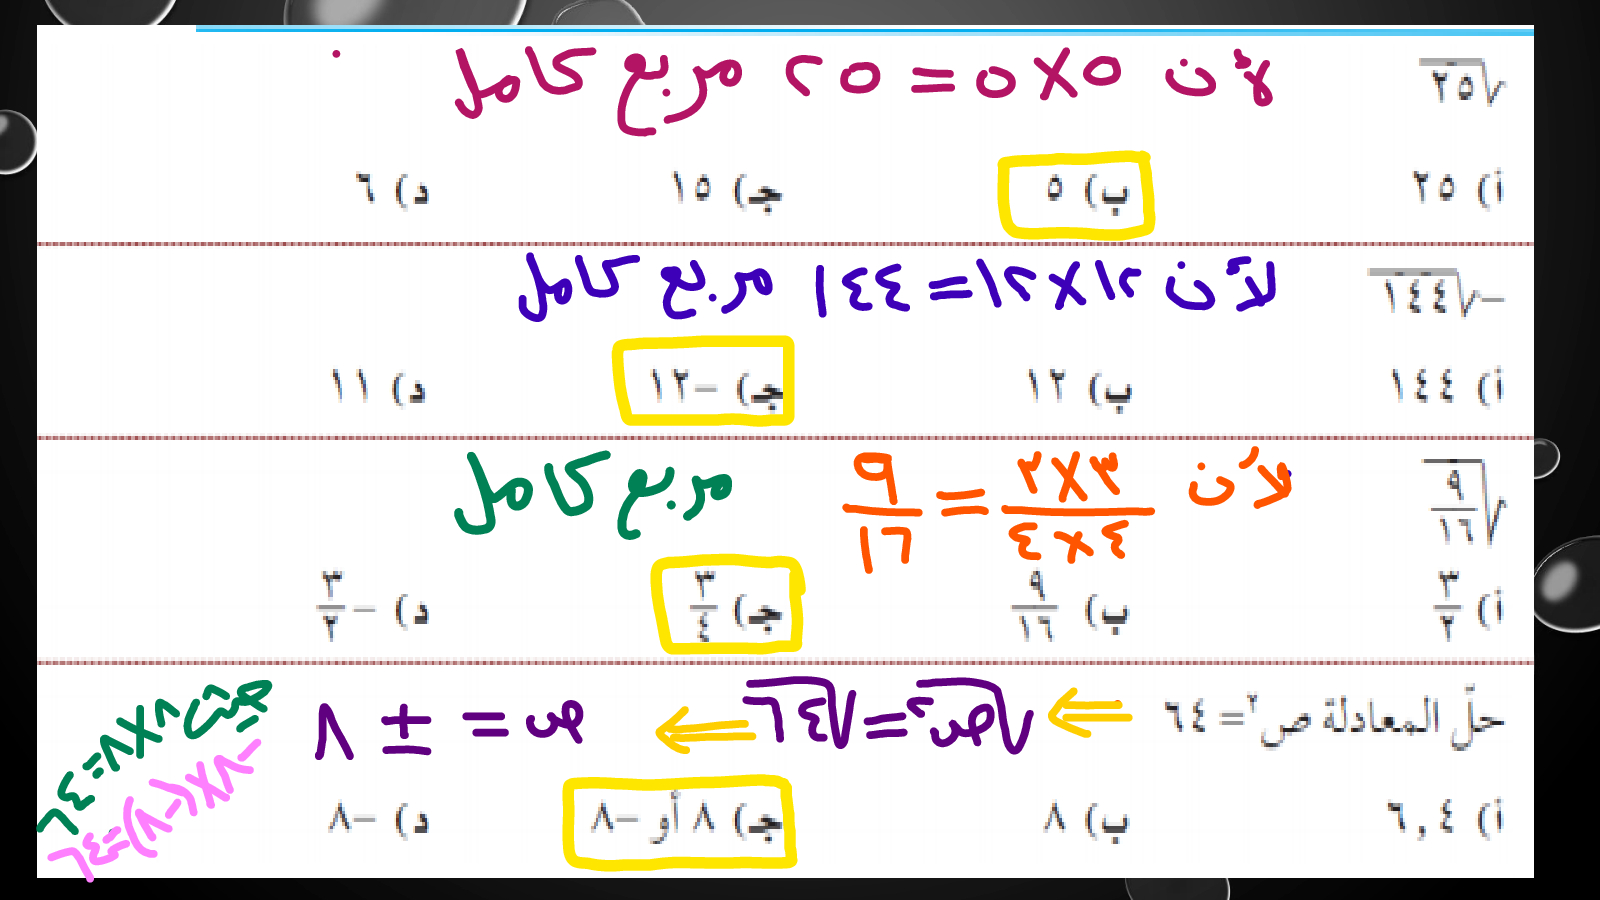 √٢٥ لأن ٥×٥ = ٢٥ مربع كامل
أ) ٢٥ ب) ٥ جـ) ١٥ د) ٦
–√١٤٤ لأن ١٢×١٢ = ١٤٤ مربع كامل
أ) ١٤٤ ب) ١٢ جـ) –١٢ د) ١١
√(٩/١٦) لأن (٣×٣)/(٤×٤) = ٩/١٦ مربع كامل
أ) ٣/٢ ب) ٩/١٦ جـ) ٣/٤ د) –٣/٢
حلّ المعادلة ص٢ = ٦٤ ⇐ √ص٢ = √٦٤ ⇐ ص = ± ٨
٨×٨=٦٤
-٨×(-٨)=٦٤
أ) ٦,٤ ب) ٨ جـ) ٨ أو –٨ د) –٨